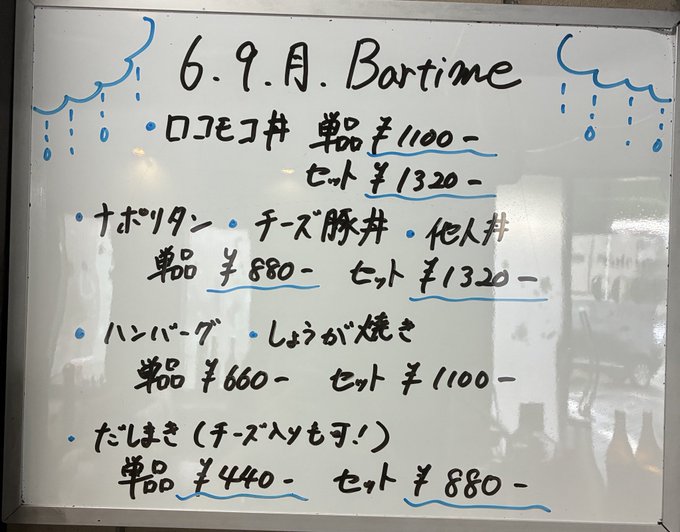 6.9.月. Bartime
・ロコモコ丼 単品 ¥1100-
セット ¥1320-
・ナポリタン ・チーズ豚丼 ・他人丼
単品 ¥880- セット ¥1320-
・ハンバーグ ・しょうが焼き
単品 ¥660- セット ¥1100-
・だしまき(チーズ入りも可!)
単品 ¥440- セット ¥880-